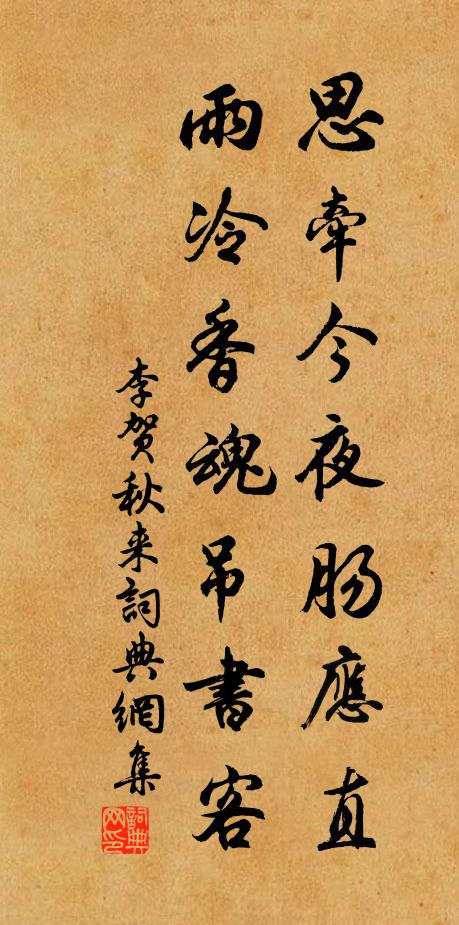 思牵今夜肠應直
雨冷香魂吊書客
李贺秋来詞典網集
詞典网印